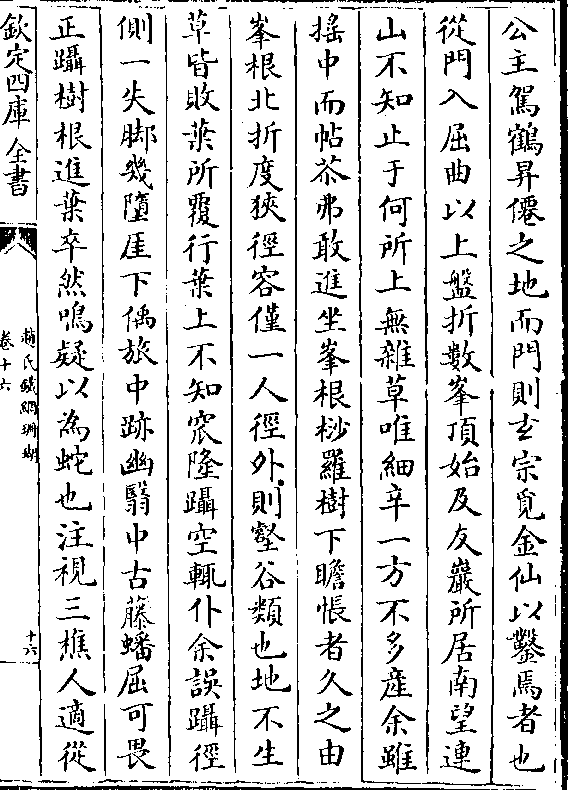 公主駕鶴昇僊之地而門則玄宗覓金仙以鑿焉者也
從門入屈曲以上盤折數峯頂始及友巖所居南望連
山不知止于何所上無雜草唯細辛一方不多産余雖
揺中而帖苶弗敢進坐峯根桫羅樹下瞻悵者久之由
峯根北折度狹徑容僅一人徑外則壑谷類也地不生
草皆敗葉所覆行葉上不知窊隆躡空輒仆余誤躡徑
側一失脚幾墮厓下俻旅中跡幽翳中古藤蟠屈可畏
正躡樹根進葉卒然鳴疑以為蛇也注視三樵人適從
欽定四庫全書
趙氏鐵網珊瑚
卷十六
十六